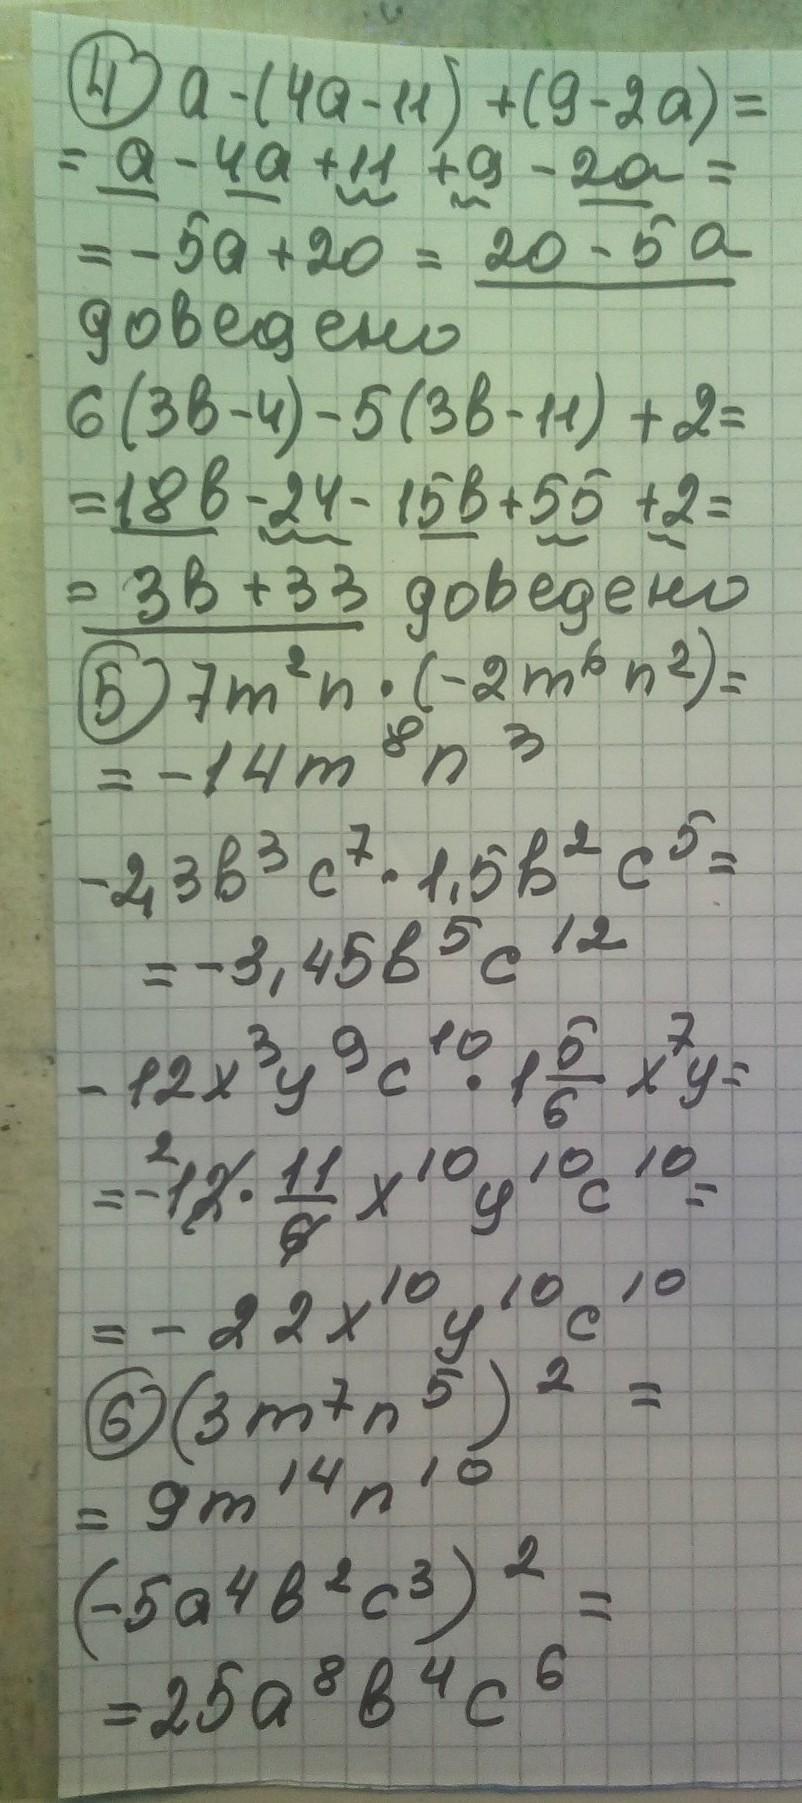 ④ a-(4a-11)+(9-2a)=
= a-4a+11+9-2a=
=-5a+20=20-5a
доведено
6(3в-4)-5(3в-11)+2=
=18в-24-15в+55+2=
=3в+33 доведено
⑤ 7m²n·(-2m⁶n²)=
=-14m⁸n³
-2,3в³c⁷·1,5в²c⁵=
=-3,45в⁵c¹²
-12x³y⁹c¹⁰·1 5/6 x⁷y=
=-12·11/6 x¹⁰y¹⁰c¹⁰=
=-22x¹⁰y¹⁰c¹⁰
⑥ (3m⁷n⁵)²=
=9m¹⁴n¹⁰
(-5a⁴в²c³)²=
=25a⁸в⁴c⁶